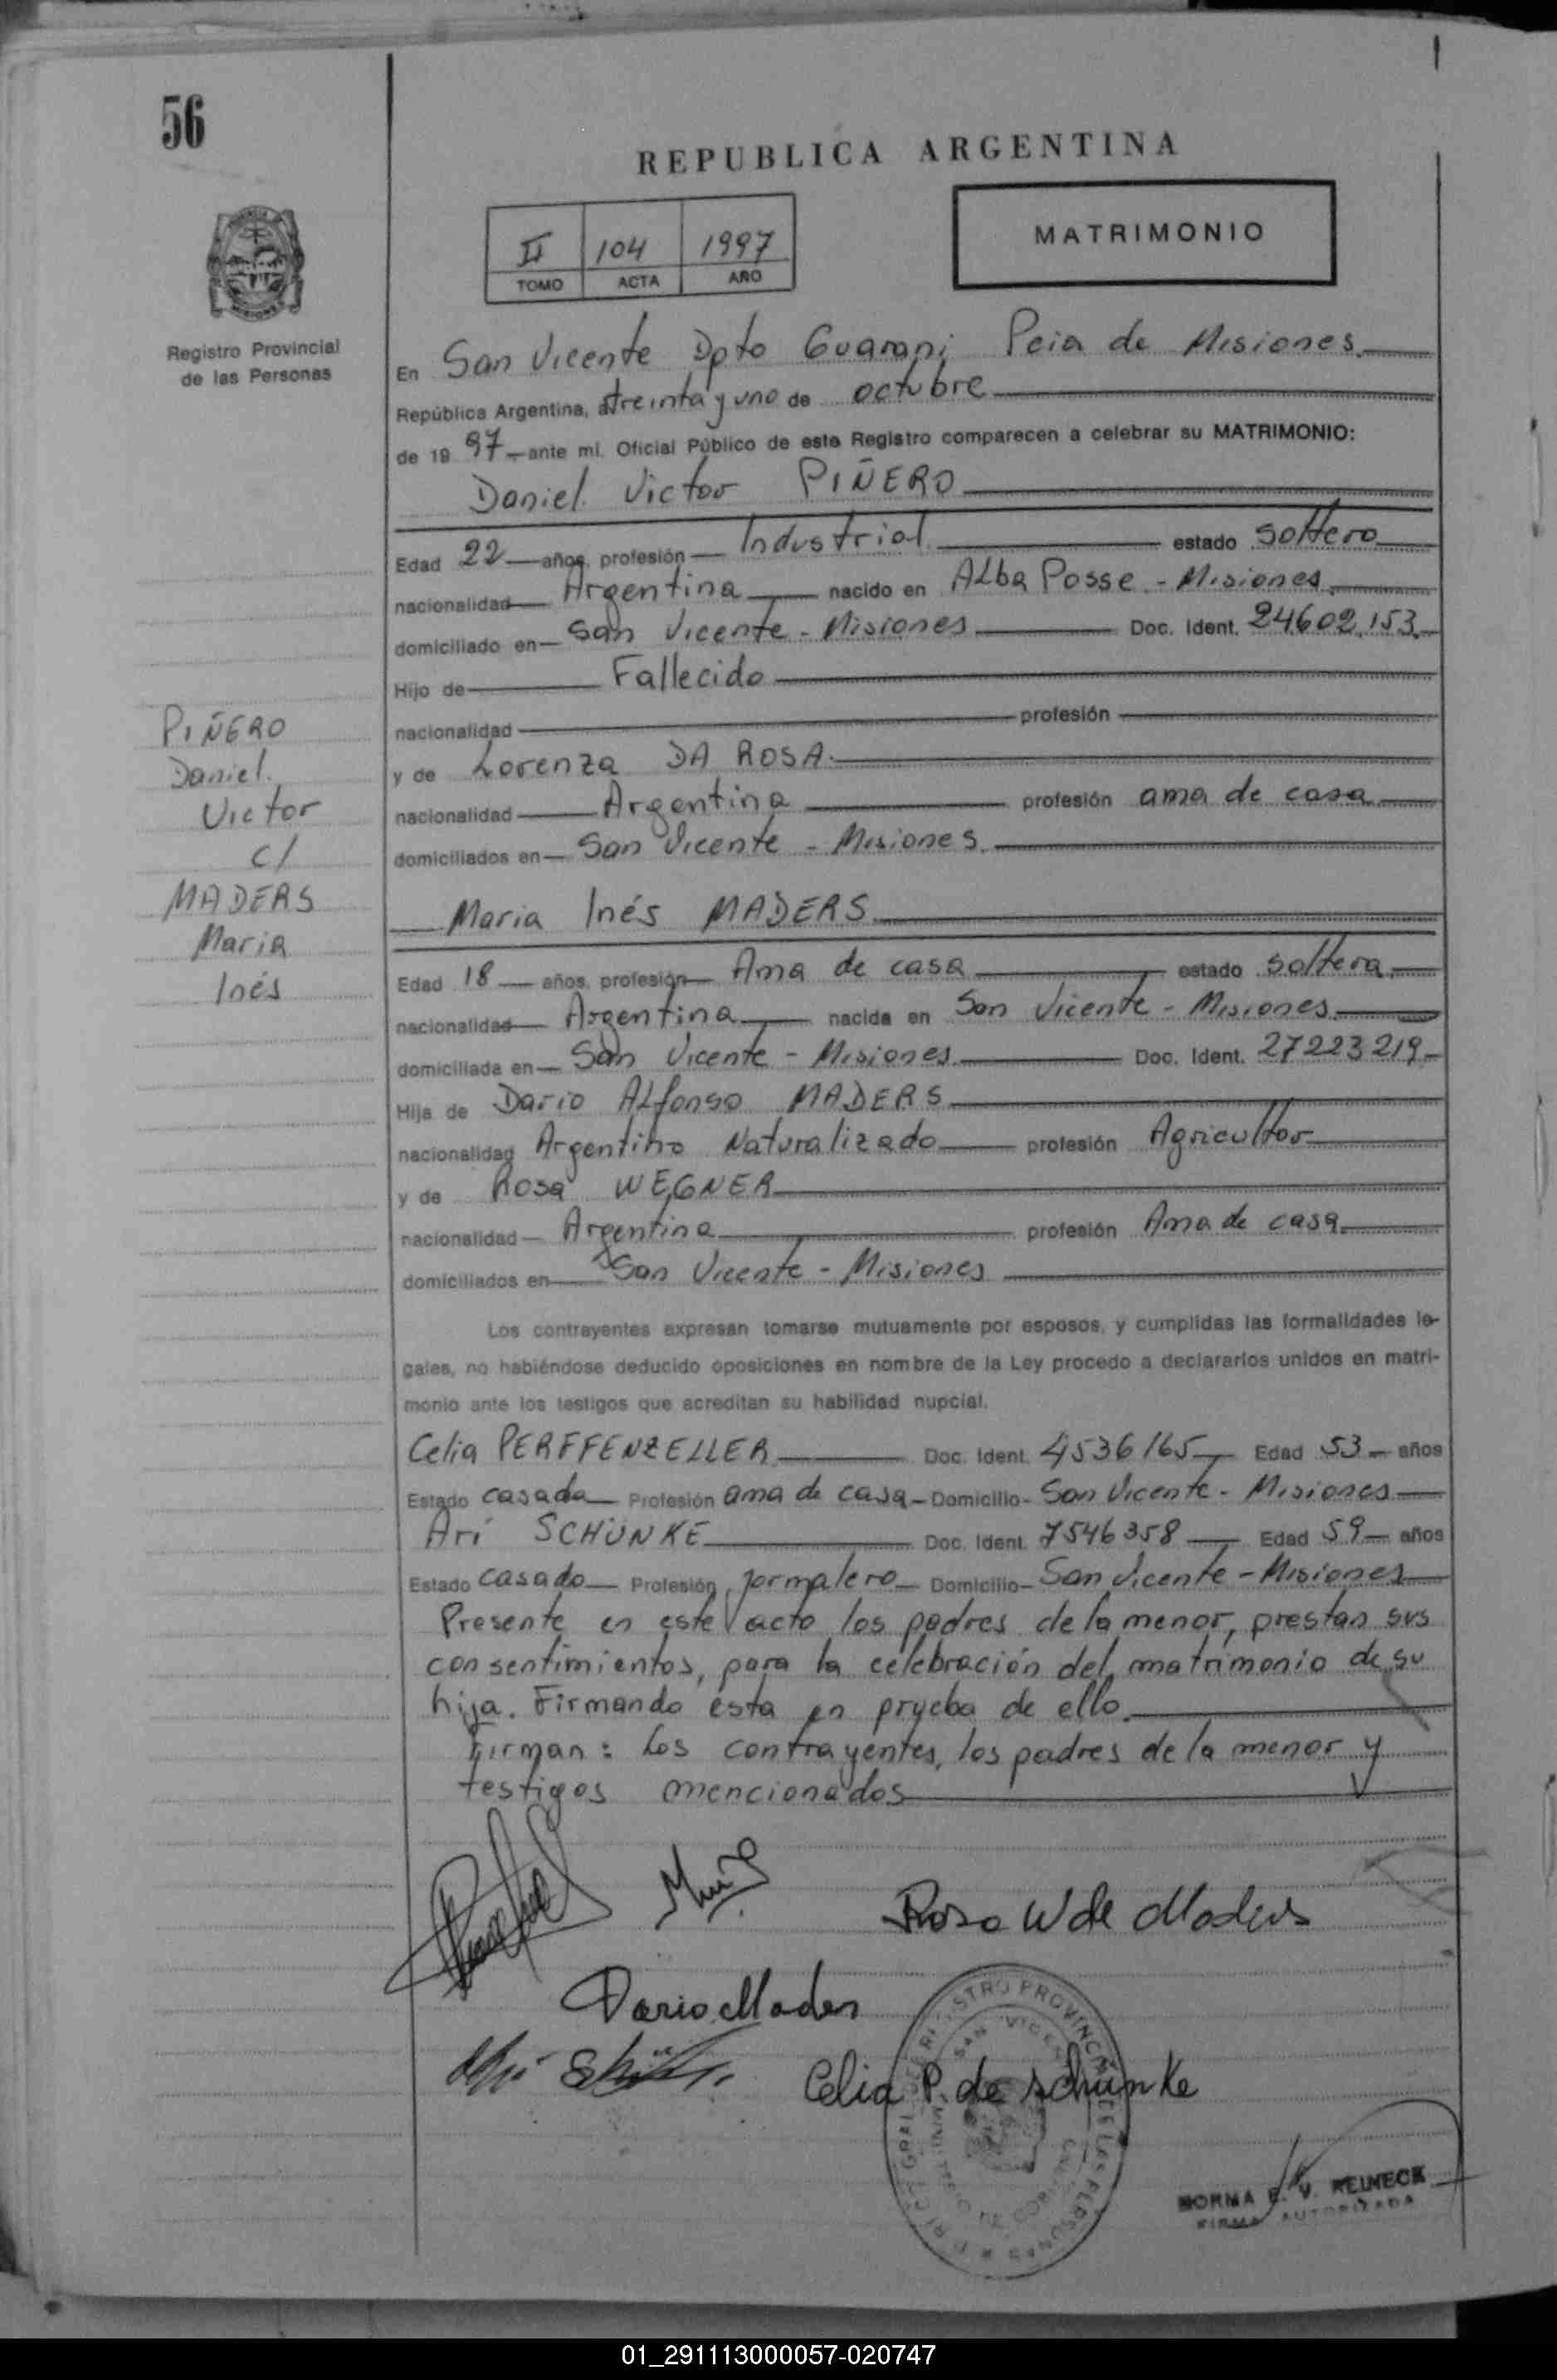 56
REPUBLICA ARGENTINA
II 104 1997
TOMO ACTA AÑO
MATRIMONIO
Registro Provincial
de las Personas
En San Vicente Dpto Guarani Pcia de Misiones
República Argentina, a treinta y uno de octubre
de 19 97 ante mi. Oficial Público de este Registro comparecen a celebrar su MATRIMONIO:
Daniel Victor PIÑERO
Edad 22 años, profesión Industrial estado soltero
nacionalidad Argentina nacido en Alba Posse - Misiones
domiciliado en San Vicente - Misiones Doc. Ident. 24602.153
Hijo de Fallecido
nacionalidad profesión
y de Lorenza DA ROSA
nacionalidad Argentina profesión ama de casa
domiciliados en San Vicente - Misiones.
PIÑERO
Daniel
Victor
c/
MADERS
Maria
Inés
Maria Inés MADERS
Edad 18 años, profesión Ama de casa estado soltera
nacionalidad Argentina nacida en San Vicente - Misiones
domiciliada en San Vicente - Misiones Doc. Ident. 27223219
Hija de Dario Alfonso MADERS
nacionalidad Argentino Naturalizado profesión Agricultor
y de Rosa WEGNER
nacionalidad Argentina profesión Ama de casa
domiciliados en San Vicente - Misiones
Los contrayentes expresan tomarse mutuamente por esposos, y cumplidas las formalidades le-
gales, no habiéndose deducido oposiciones en nombre de la Ley procedo a declararlos unidos en matri-
monio ante los testigos que acreditan su habilidad nupcial.
Celia PERFFENZELLER Doc. Ident. 4536165 Edad 53 años
Estado casada Profesión ama de casa Domicilio San Vicente - Misiones
Ari SCHÜNKE Doc. Ident. 7546358 Edad 59 años
Estado casado Profesión jornalero Domicilio San Vicente - Misiones
Presente en este acto los padres de la menor, prestan sus
consentimientos, para la celebración del matrimonio de su
hija. Firmando esta en prueba de ello.
Firman: Los contrayentes, los padres de la menor y
testigos mencionados
Rosa W de Maders
Dario Maders
Celia P. de Schünke
NORMA E. V. REINECK
FIRMA AUTORIZADA
01_291113000057-020747